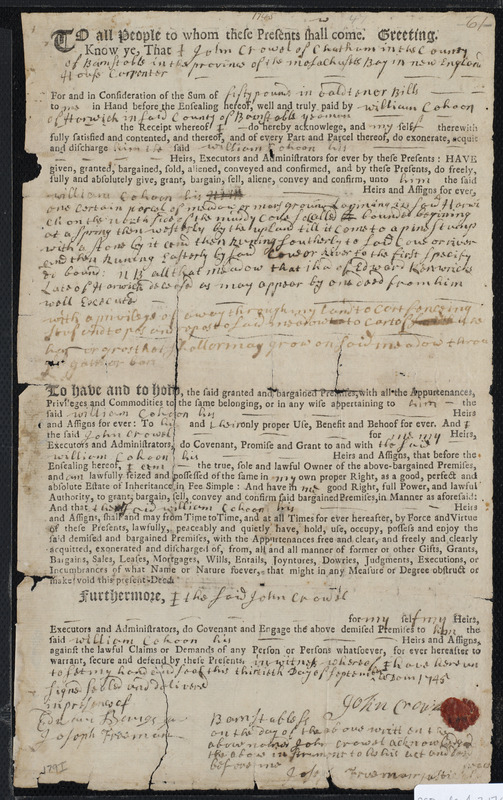 1745
TO all People to whom these Presents shall come. Greeting.
Know ye, That I John Crowel of Chatham in the County
of Barnstable in the province of the masachusets Bay in new England
House Carpenter
For and in Consideration of the Sum of fifty pounds in bald tenor Bills
to me in Hand before the Ensealing hereof, well and truly paid by william Cohoon
of Harwich in said County of Barnstable yeoman
the Receipt whereof I do hereby acknowlege, and my self therewith
fully satisfied and contented, and thereof, and of every Part and Parcel thereof, do exonerate, acquit
and discharge him the said william Cohoon his
Heirs, Executors and Administrators for ever by these Presents: HAVE
given, granted, bargained, sold, aliened, conveyed and confirmed, and by these Presents, do freely,
fully and absolutely give, grant, bargain, sell, aliene, convey and confirm, unto him the said
william Cohoon his Heirs and Assigns for ever,
one certain parcel of meadow or mars ground Lying in said Harwi
Ch on the north side of the muddy Cove so called bounded begining
at a spring then westerly by the upland till it come to a pine stump
with a stone by it and then Runing southerly to said Cove or river
and then Runing Easterly by said Cove or River to the first specify
d bound: it is all that meadow that tha of Edward Kenwricke
Late of Harwich deceased as may appear by one deed from him
well Executed
with a privilege of a way through my land to cart
to pas and repas to said meadow to cart of
hay or gras that shall or may grow on said meadow
To have and to hold, the said granted and bargained Premises, with all the Appurtenances,
Privileges and Commodities to the same belonging, or in any wise appertaining to him the
said william Cohoon his Heirs
and Assigns for ever: To his and their only proper Use, Benefit and Behoof for ever. And I
the said John Crowel for me my Heirs,
Executors and Administrators, do Covenant, Promise and Grant to and with the said
william Cohoon his Heirs and Assigns, that before the
Ensealing hereof, I am the true, sole and lawful Owner of the above-bargained Premises,
and am lawfully seized and possessed of the same in my own proper Right, as a good, perfect and
absolute Estate of Inheritance in Fee Simple: And have in me good Right, full Power, and lawful
Authority, to grant, bargain, sell, convey and confirm said bargained Premises, in Manner as aforesaid:
And that the said william Cohoon his Heirs
and Assigns, shall and may from Time to Time, and at all Times for ever hereafter, by Force and Virtue
of these Presents, lawfully, peaceably and quietly have, hold, use, occupy, possess and enjoy the
said demised and bargained Premises, with the Appurtenances free and clear, and freely and clearly
acquitted, exonerated and discharged of, from, all and all manner of former or other Gifts, Grants,
Bargains, Sales, Leases, Mortgages, Wills, Entails, Joyntures, Dowries, Judgments, Executions, or
Incumbrances of what Name or Nature soever, that might in any Measure or Degree obstruct or
make void this present Deed.
Furthermore, I the said John Crowel
for my self my Heirs,
Executors and Administrators, do Covenant and Engage the above demised Premises to him the
said william Cohoon his Heirs and Assigns,
against the lawful Claims or Demands of any Person or Persons whatsoever, for ever hereafter to
warrant, secure and defend by these Presents. in witnes whereof I have here un
to set my hand and seal this thirtieth Day of September 1745
signed sealed and delivered
in presence of
John Crowel
Joseph Freeman
Barnstable ss
on the day of the above writt en the
above named John Crowel acknowledged
the above instrument to be his act and deed
before me
Jos Freeman Justis